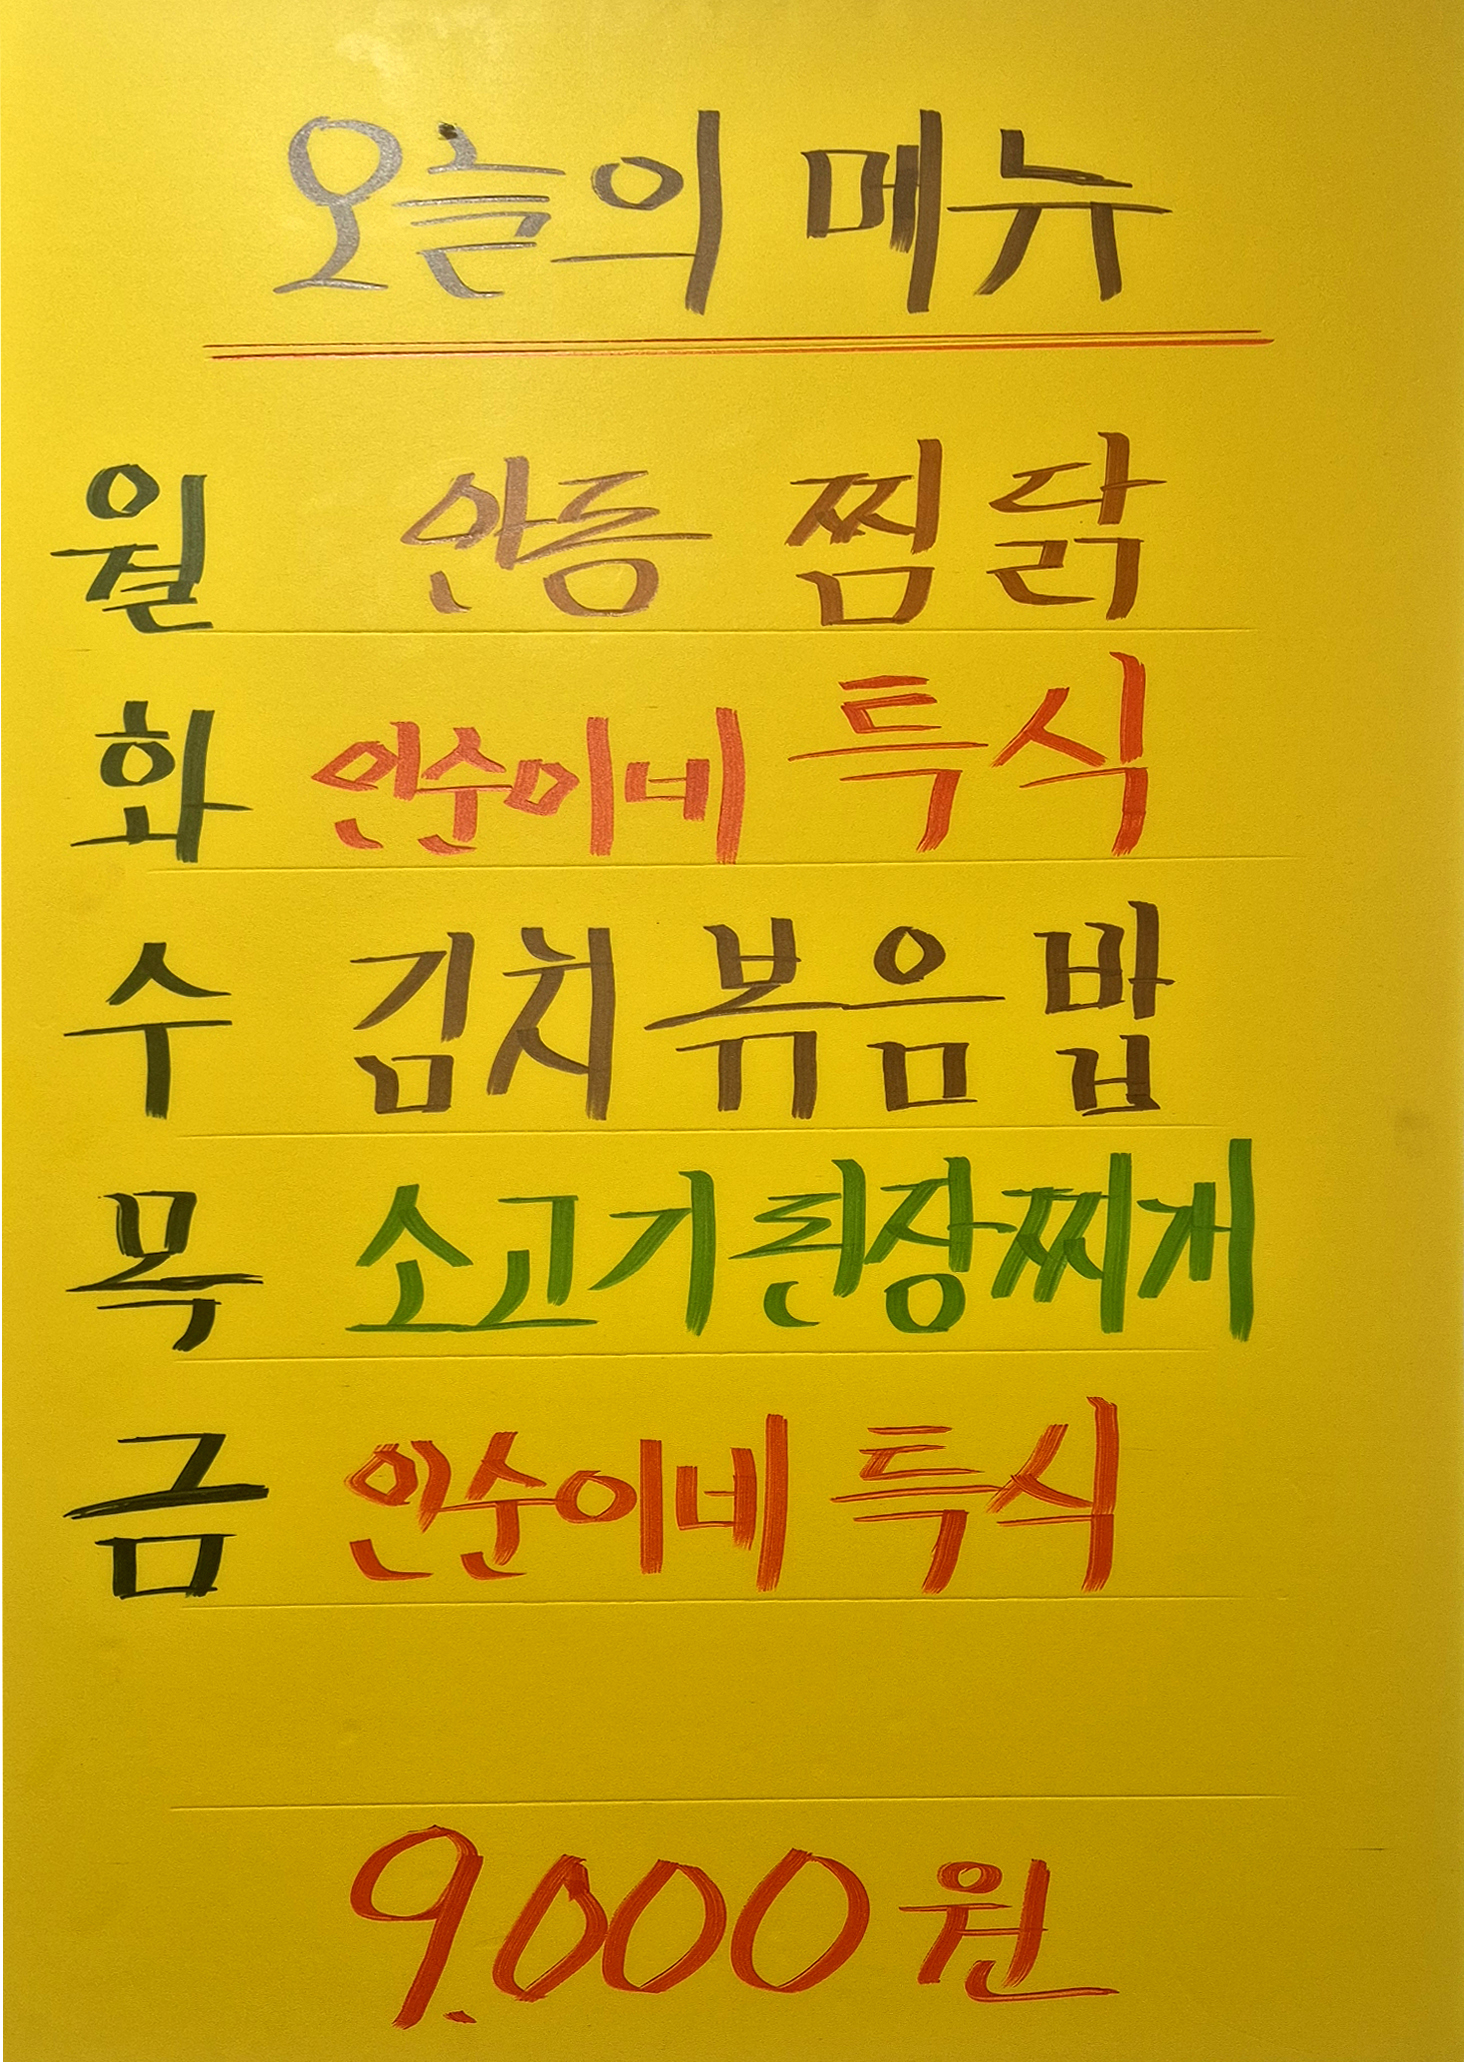 오늘의 메뉴
월 안동 찜닭
화 인순이네 특식
수 김치볶음밥
목 소고기된장찌개
금 인순이네 특식
9.000원